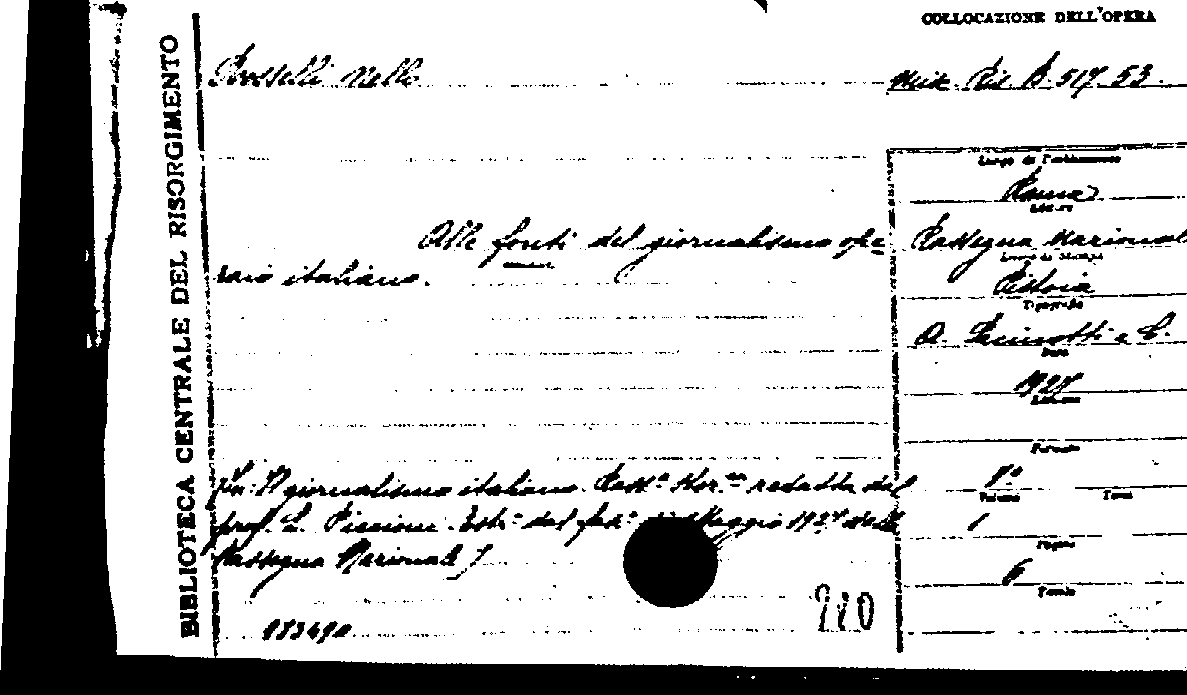 COLLOCAZIONE DELL'OPERA
BIBLIOTECA CENTRALE DEL RISORGIMENTO
Rosselli Nello
Misc. Ris. B. 517. 53.
Luogo di Pubblicazione
Roma
Editore
Alle fonti del giornalismo ope
raio italiano.
Rassegna Nazionale
Luogo di Stampa
Pistoia
Tipografia
A. Pacinotti e C.
Data
1927
Edizione
Formato
8°
Volume
Tomi
1
Pagine
6
Tavole
[In: Il giornalismo italiano. Rass.ª Stor.ca redatta dal
prof. L. Piccioni. Estr.º dal fasc.º di Maggio 1927 della
Rassegna Nazionale]
210